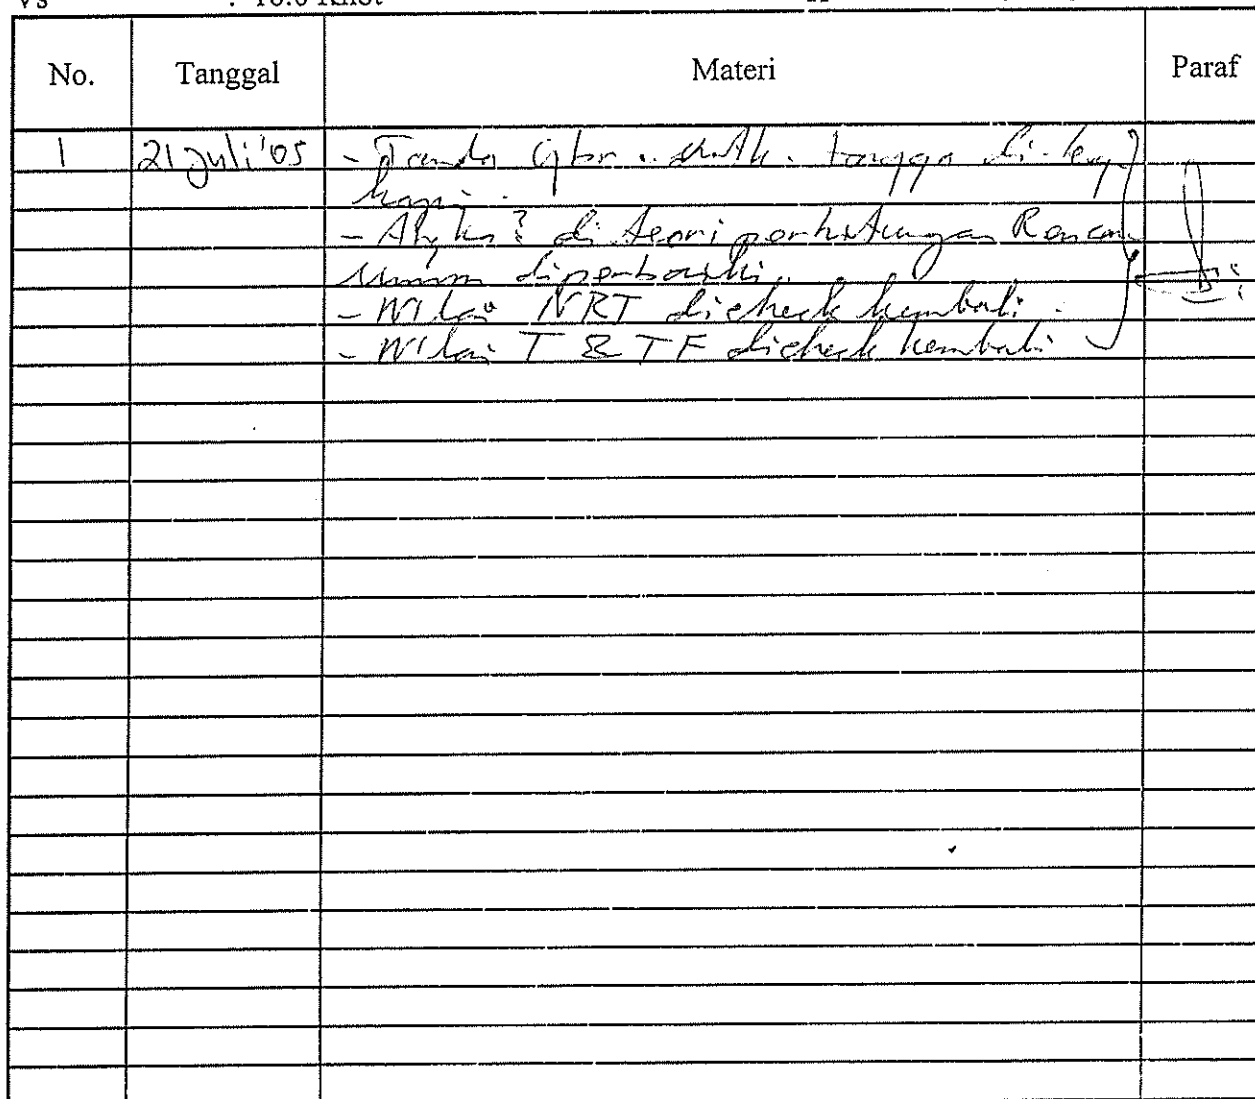 Vs : 16.0 Knot
No. Tanggal Materi Paraf
1 21 Juli '05 - Tanda Gbr. tangga di-leng
kapi.
- di teori perhitungan Rencana
Umum diperbaiki.
- Nilai NRT dicheck kembali.
- Nilai T & TF dicheck kembali